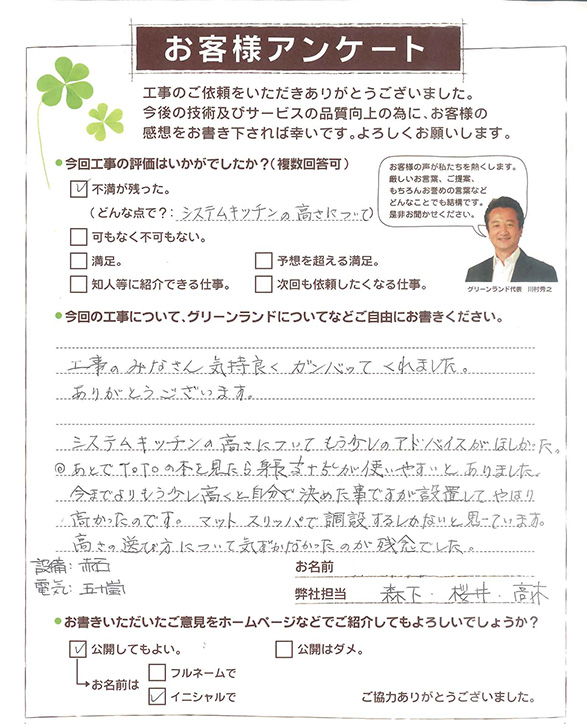 お客様アンケート
工事のご依頼をいただきありがとうございました。
今後の技術及びサービスの品質向上の為に、お客様の
感想をお書き下されば幸いです。よろしくお願いします。
●今回工事の評価はいかがでしたか？(複数回答可)
☑不満が残った。
(どんな点で？: システムキッチンの高さについて)
□可もなく不可もない。
□満足。 □予想を超える満足。
□知人等に紹介できる仕事。 □次回も依頼したくなる仕事。
お客様の声が私たちを熱くします。
厳しいお言葉、ご提案、
もちろんお誉めの言葉など
どんなことでも結構です。
是非お聞かせください。
グリーンランド代表 川村秀之
●今回の工事について、グリーンランドについてなどご自由にお書きください。
工事のみなさん 気持良く ガンバって くれました。
ありがとうございます。
システムキッチンの高さについて もう少しのアドバイスがほしかった。
◎あとでTOTOの本を見たら身長÷2+5㎝が使いやすいと ありました
今までよりもう少し高くと自分で決めた事ですが設置して やはり
高かったのです。 マット スリッパで 調設するしかないと思っています。
高さの選び方について気ずかなかったのが 残念でした。
設備: 赤石
電気: 五十嵐
お名前
弊社担当 森下・桜井・高木
●お書きいただいたご意見をホームページなどでご紹介してもよろしいでしょうか？
☑公開してもよい。 □公開はダメ。
お名前は □フルネームで
☑イニシャルで
ご協力ありがとうございました。